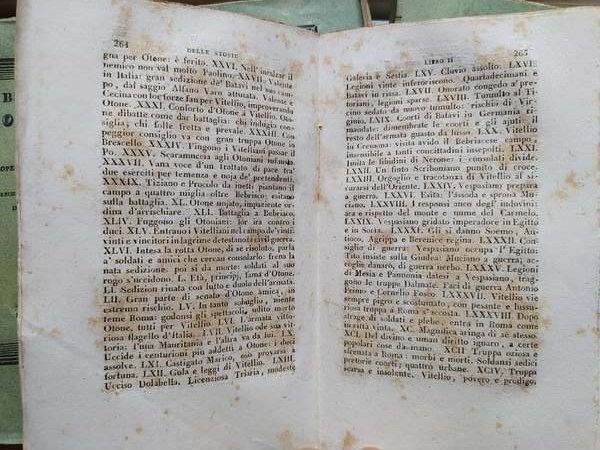 B
O
OPE
264
DELLE STORIE
gna per Otone: è ferito. XXVI. Nell'incalzar il
nemico non val molto Paolino. XXVII. Valente
in Italia: gran sedizione de' Batavi nel suo cam-
po, dal saggio Alfano Varo attutata. XXX. Valente e
Cecina con lor forze fan per Vitellio, improverano
Otone. XXXI. Confortato d'Otone a Vitellio. Otone
ne dibatte come dar battaglia: chi indugio con-
siglia, chi folle fretta e prevale. XXXIII. Con
peggior consiglio va con gran truppa Otone in
Brescello. XXXIV. Fingono i Vitelliani passar
Po. XXXV. Scaramuccia agli Otoniani infausta.
XXXVII. Vana voce d'un trattato di pace tra'
due eserciti per temenza e noja de' pretendenti.
XXXIX. Tiziano e Proculo da inetti piantano il
campo a quattro miglia oltre Bebriaco; esitano
sulla battaglia. XL. Otone nojato, impaziente or-
dina d'arrischiare. XLI. Battaglia a Bebriaco.
XLIV. Fuggono gli Otoniani: lor ira contro i
duci. XLV. Entrano i Vitelliani nel campo de' vinti:
vinti e vincitori in lagrime detestano civil guerra.
XLVI. Intesa la rotta Otone, di se risoluto, parla
a' soldati e amici che cercan consolarlo: frena la
nata sedizione. poi si dà morte: soldati al suo
rogo s'uccidono. L. Età, principj, fama d'Otone.
LI. Sedizion rinata con lutto e duolo dell'armata.
LII. Gran parte di senato d'Otone amica, in
estremo rischio. LV. In tanto subuglio, niente
teme Roma: godonsi gli spettacoli, udito morto
Otone, tutti per Vitellio. LVI. L'armata vitto-
riosa flagello d'Italia. LVII. Vitellio ode sua vit-
toria: l'una Mauritania e l'altra va da lui. LX.
Uccide i centurioni più addetti a Otone: i duci
assolve. LXI. Castigato Marico, osò provarsi a
fortuna. LXII. Gola e leggi di Vitellio. LXIII.
Ucciso Dolabella. Licenziosa Triaria, modeste
LIBRO II
265
Galeria e Sestia. LXV. Cluvio assolto. LXVI.
Legioni vinte inferociscono. Quartadecimani e
Batavi in rissa. LXVII. Onorato congedo a' pre-
toriani, legioni sparse. LXVIII. Tumulto al Ti-
cino sedato da nuovo tumulto: rischio di Vir-
ginio. LXIX. Coorti di Batavi in Germania ri-
mandate: dimembrate le coorti e gli ajuti. il
campo dell'arme guasto da lusso. LXX. Vitellio
in Cremona visita avido il Bebriacese campo:
insensibile a tanti concittadini insepolti. LXXI.
Imita le libidini di Nerone: i consulati divide.
LXXII. Un finto Scriboniano punto di croce.
LXXIII. Orgoglio e tracotanza di Vitellio al si-
curarsi dell'Oriente. LXXIV. Vespasiano prepara
a guerra. LXXVI. Esita, l'anima e sprona Mu-
ciano. LXXVIII. I responsi anco degl'indovini:
ara e rispetto del monte e nume del Carmelo.
LXXIX. Vespasiano gridato imperadore in Egitto
e in Soria. LXXXI. Gli si danno Soemo, An-
tioco, Agrippa e Berenice regina. LXXXII. Con-
siglio di guerra: Vespasiano occupa l'Egitto:
Tito insiste sulla Giudea: Muciano a guerra; ac-
coglie danaro, di guerra nerbo. LXXXV. Legioni
di Mesia e Pannonia datesi a Vespasiano, trag-
gono le truppe Dalmate. Faci di guerra Antonio
Primo e Cornelio Fosco. LXXXVII. Vitellio vie
sempre pigro e scostumato, con pesante e lussu-
riosa truppa a Roma s'accosta. LXXXVIII. Dopo
strage di soldati e plebe, entra in Roma come
in città vinta. XC. Magnifica aringa di sè stesso.
XCI. Del divino e uman diritto ignaro, a certe
popolari cose da-mano. XCII. Truppa oziosa e
sfrenata a Roma: morbi e morti. Soldati sedici
pretorie coorti; quattro urbane. XCIV. Truppa
scarsa e insolente. Vitellio, povero e prodigo,